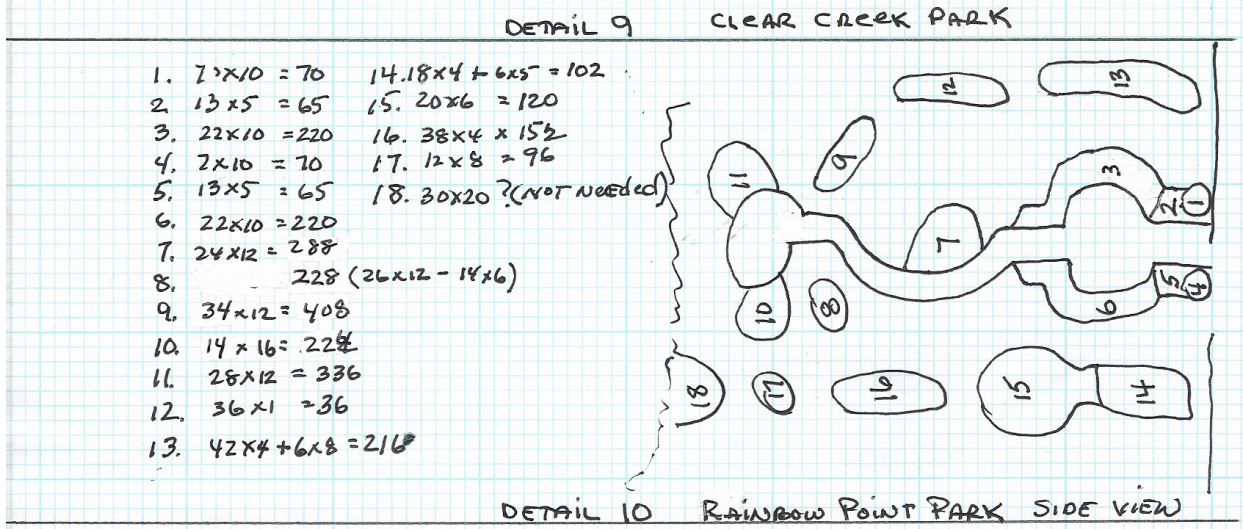 DETAIL 9 CLEAR CREEK PARK
1. 7 x10 = 70
2 13 x5 = 65
3. 22x10 = 220
4. 7x10 = 70
5. 13x5 = 65
6. 22x10 = 220
7. 24x12 = 288
8. 228 (26x12 - 14x6)
9. 34x12 = 408
10. 14 x 16 = 224
11. 28x12 = 336
12. 36 x1 = 36
13. 42x4 + 6x8 = 216
14. 18x4 + 6x5 = 102
15. 20x6 = 120
16. 38x4 x 152
17. 12x8 = 96
18. 30x20 ? (NOT Needed)
12
13
11
9
3
2
1
7
10
8
6
5
4
18
17
16
15
14
DETAIL 10 RAINBOW POINT PARK SIDE VIEW